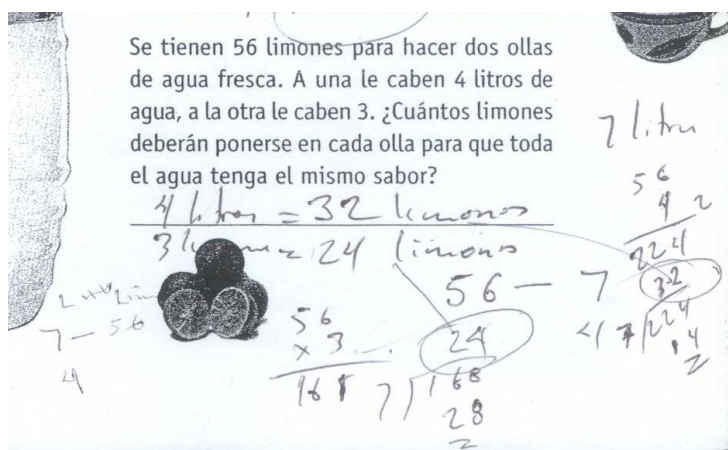 Se tienen 56 limones para hacer dos ollas
de agua fresca. A una le caben 4 litros de
agua, a la otra le caben 3. ¿Cuántos limones
deberán ponerse en cada olla para que toda
el agua tenga el mismo sabor?
7 litros
4 litros = 32 limones
3 = 24 limones
56
4
224
32
7 224
56 — 7
4
7 — 56
4
56
x 3
168
24
7 168
28